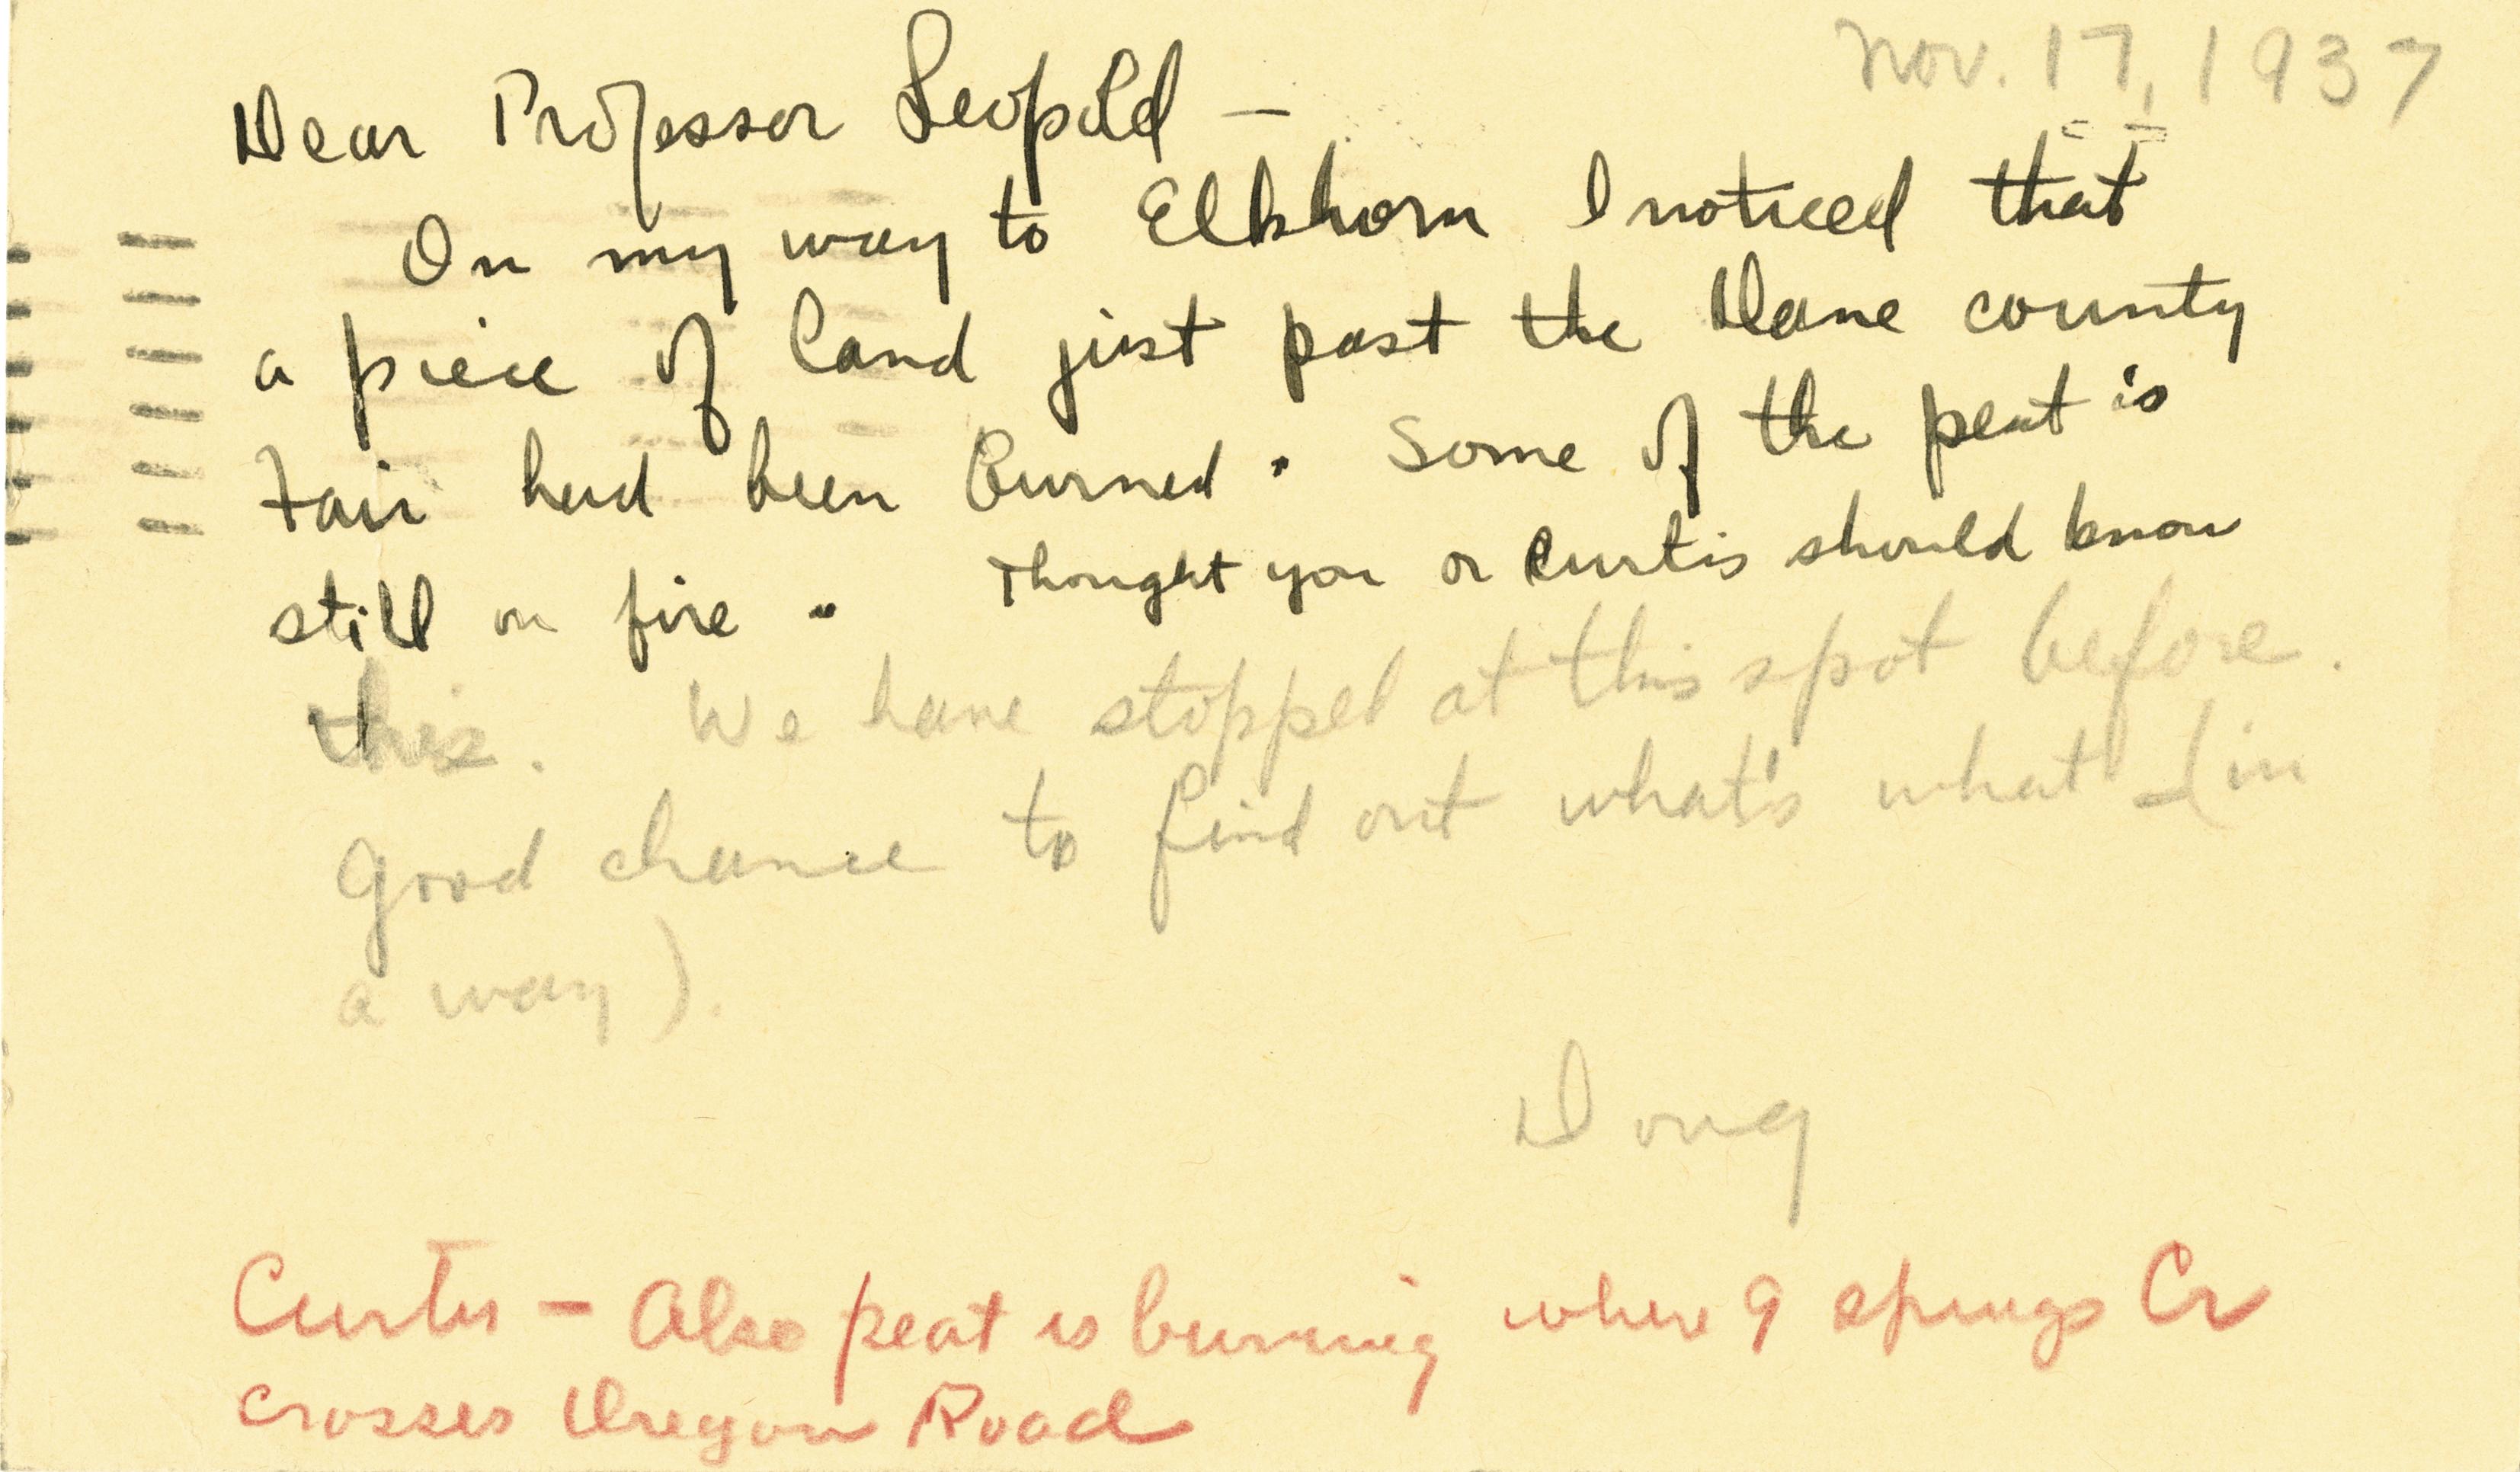 Nov. 17, 1937
Dear Professor Leopold —
On my way to Elkhorn I noticed that
a piece of land just past the Dane county
Fair had been burned. Some of the peat is
still on fire. Thought you or Curtis should know
this. We have stopped at this spot before.
Good chance to find out what's what (in
a way).
Doug
Curtis — Also peat is burning where 9 springs Cr
crosses Oregon Road